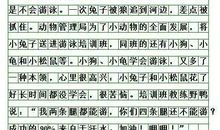 是不会游泳。一次兔子被狼追到河边，差点被
抓住。动物管理局为了小动物的全面发展，将
小兔子送进游泳培训班，同班的还有小狗、小
龟和小松鼠等。小狗、小龟学会游泳，又多了
一种本领，心里很高兴，小兔子和小松鼠花了
好长时间都没学会，很苦恼。培训班教练野鸭
说：“我两条腿都能游，你们四条腿还不能游？
成功的90%来自于汗水。加油！嘎嘎！”